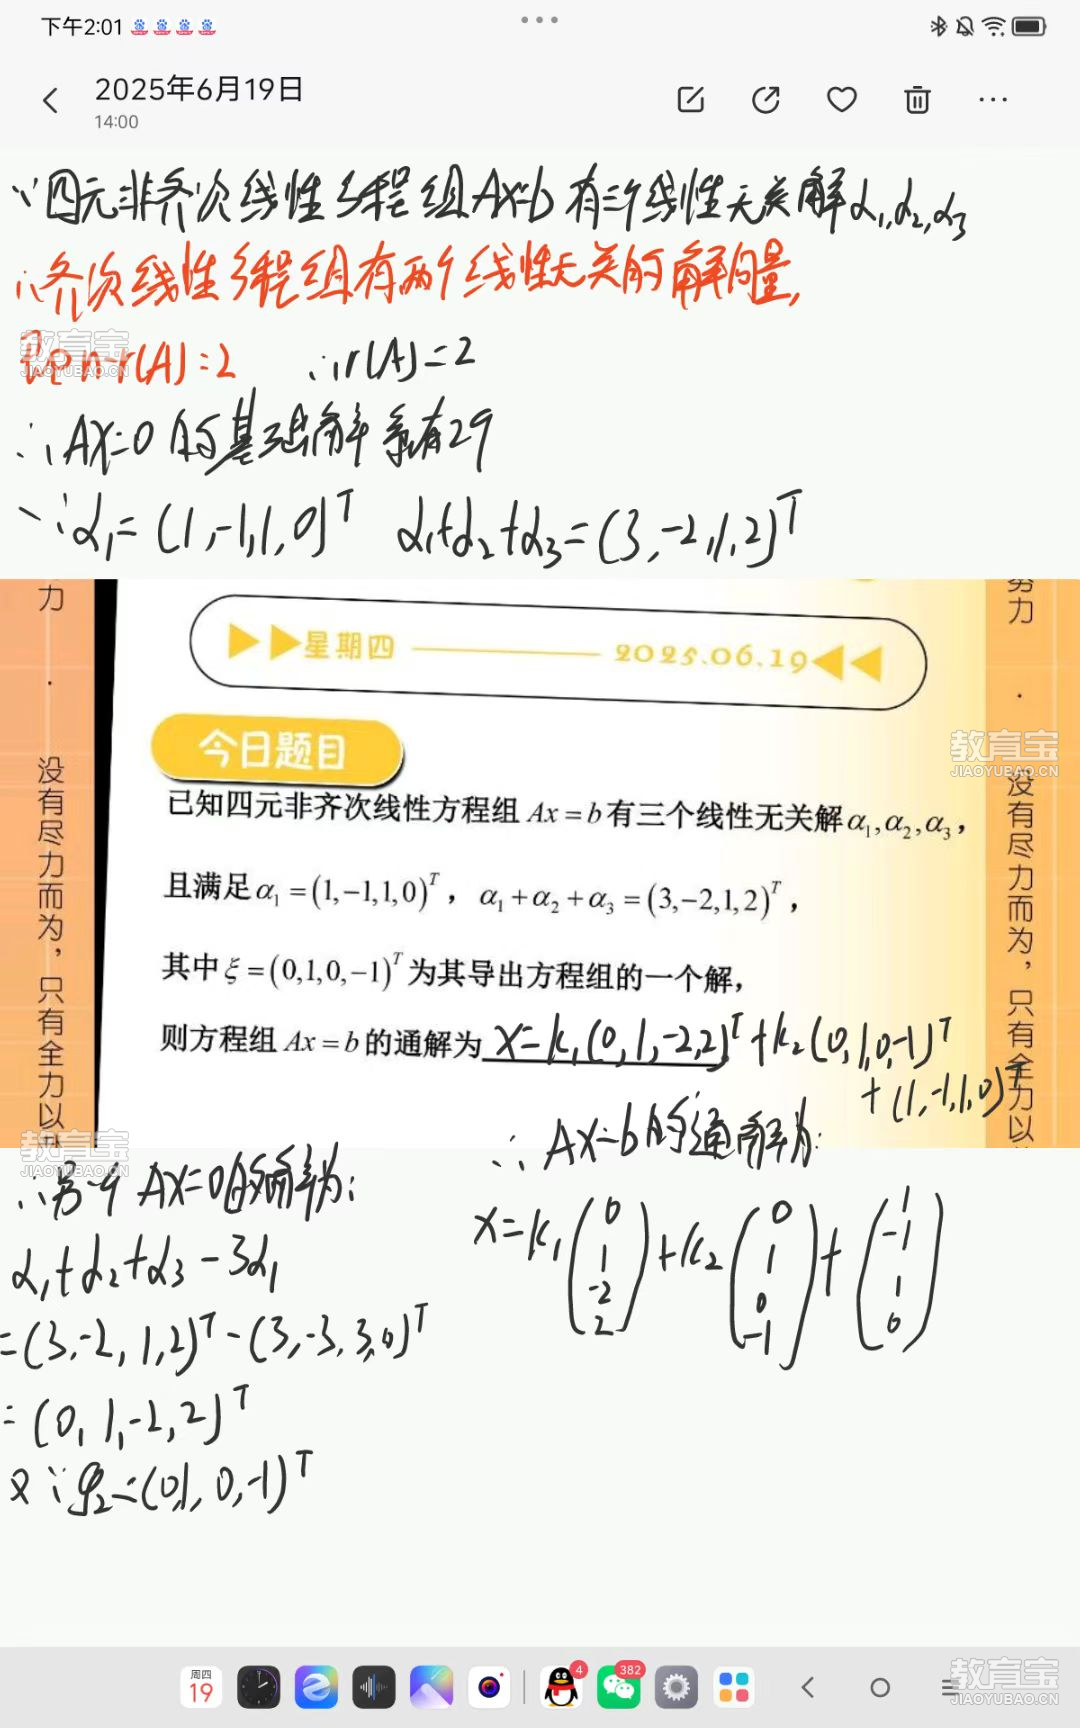 下午2:01
2025年6月19日
14:00
∵四元非齐次线性方程组AX=b有三个线性无关解α₁,α₂,α₃
∴齐次线性方程组有两个线性无关的解向量,
即n-r(A)=2 ∴r(A)=2
∴AX=0的基础解系有2个
∵α₁=(1,-1,1,0)ᵀ α₁+α₂+α₃=(3,-2,1,2)ᵀ
星期四 2025.06.19
今日题目
已知四元非齐次线性方程组 Ax=b 有三个线性无关解 α₁,α₂,α₃,
且满足 α₁=(1,-1,1,0)ᵀ, α₁+α₂+α₃=(3,-2,1,2)ᵀ,
其中 ξ=(0,1,0,-1)ᵀ 为其导出方程组的一个解,
则方程组 Ax=b 的通解为 X=k₁(0,1,-2,2)ᵀ+k₂(0,1,0,-1)ᵀ
+(1,-1,1,0)ᵀ
力 · 没有尽力而为,只有全力以
努力 · 没有尽力而为,只有全力以
∴另一个AX=0的解为:
α₁+α₂+α₃-3α₁
=(3,-2,1,2)ᵀ-(3,-3,3,0)ᵀ
=(0,1,-2,2)ᵀ
又∵ξ₂=(0,1,0,-1)ᵀ
∴AX=b的通解为:
X=k₁(0 1 -2 2)+k₂(0 1 0 -1)+(1 -1 1 0)
教育宝
JIAOYUBAO.CN
教育宝
JIAOYUBAO.CN
教育宝
JIAOYUBAO.CN
周四
19
4
382
教育宝
JIAOYUBAO.CN